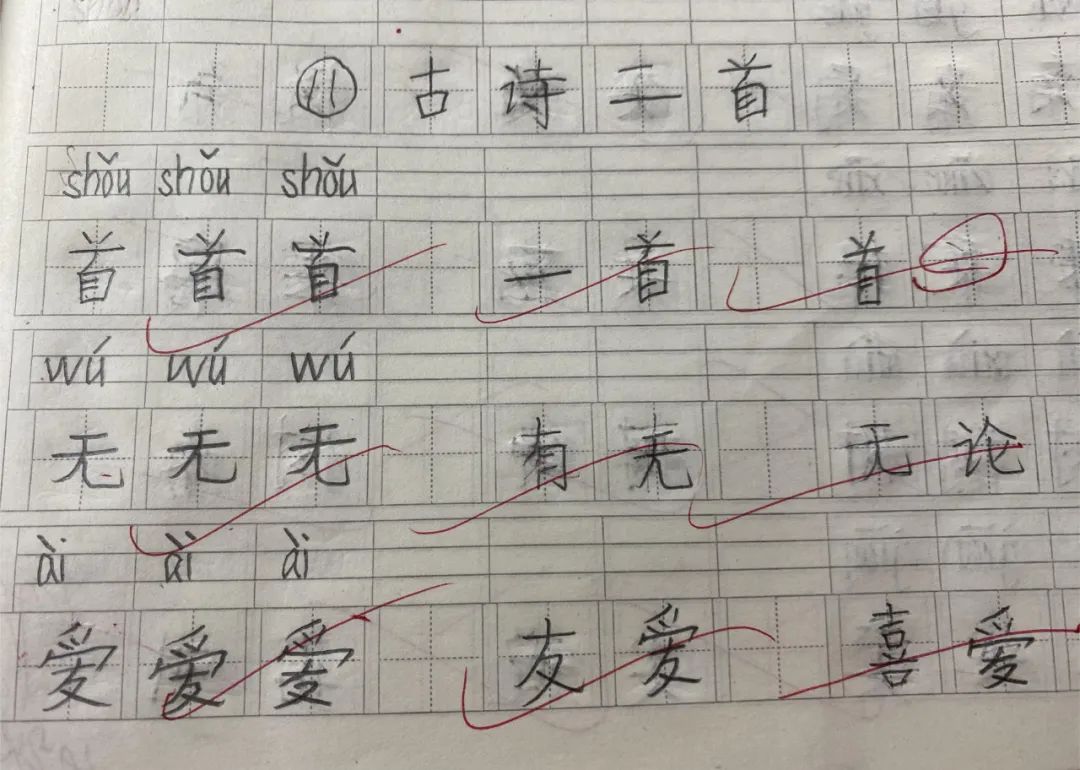 ⑪ 古诗二首
shǒu shǒu shǒu
首 首 首 一首 首
wú wú wú
无 无 无 有无 无论
ài ài ài
爱 爱 爱 友爱 喜爱